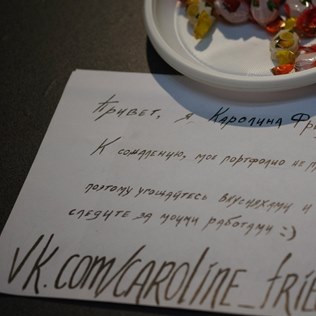 Привет, я Каролина Фри
К сожалению, мое портфолио не п
поэтому угощайтесь вкусняхами и
следите за моими работами :)
VK.COM/CAROLINE_FRIE